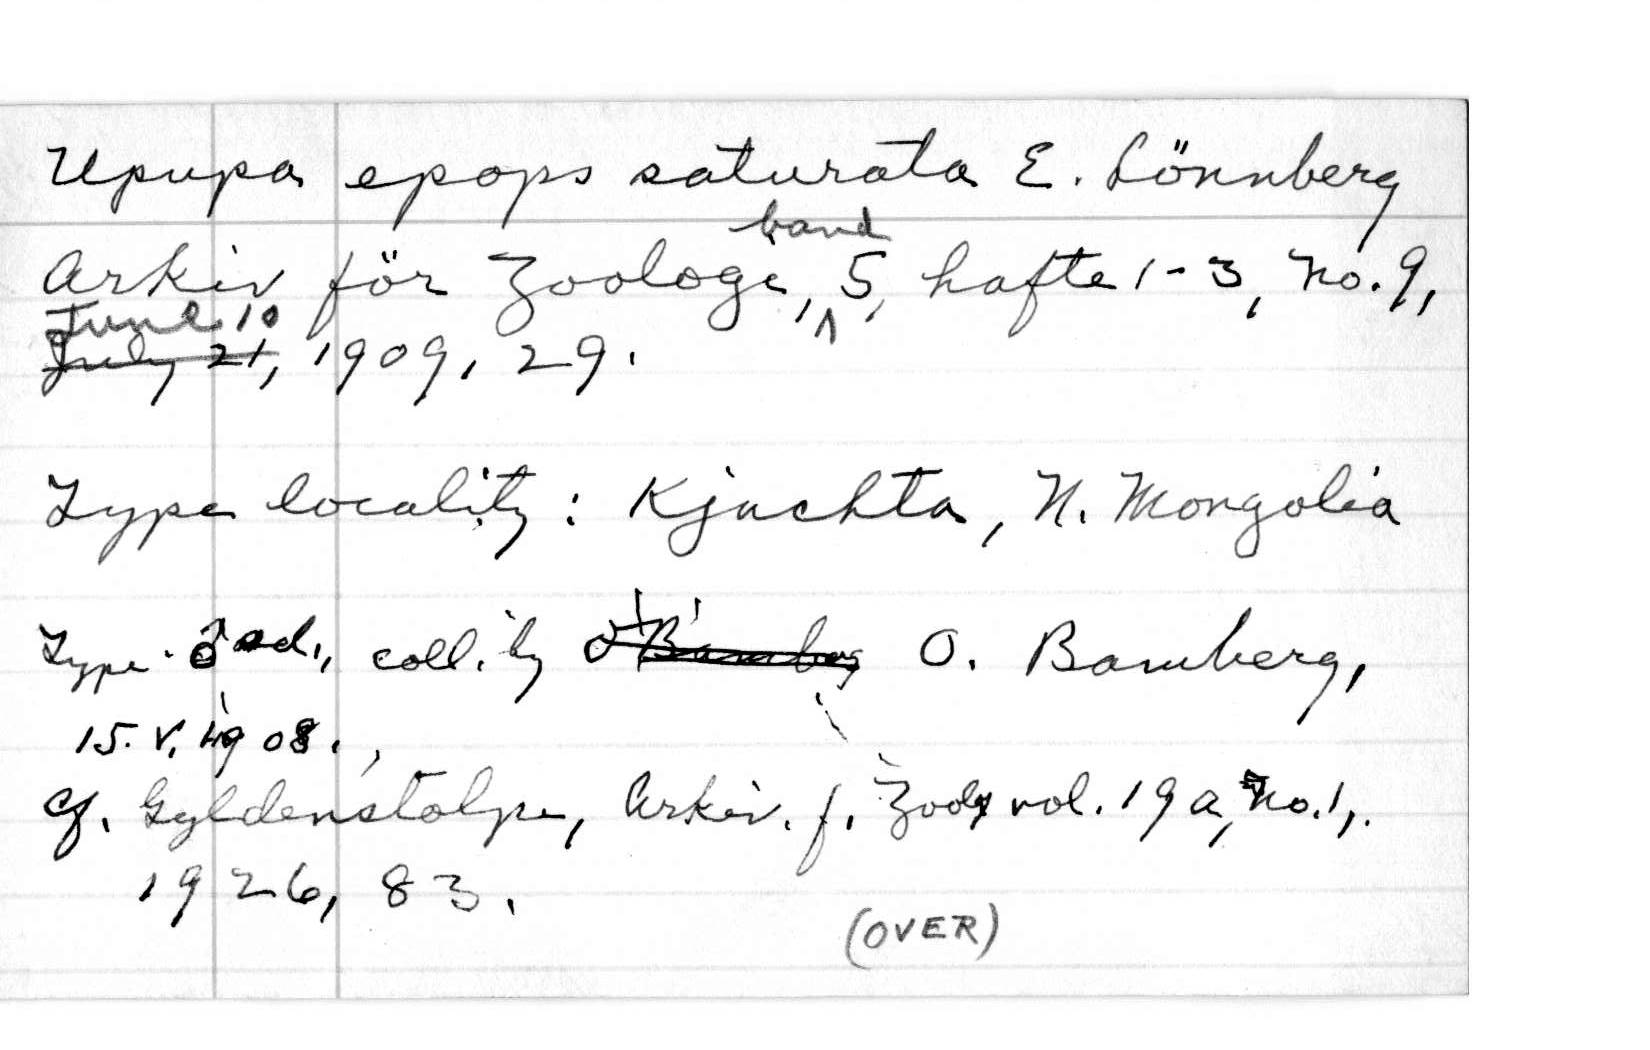 Upupa epops saturata E. Lönnberg
band
Arkiv för Zoologi, 5, hafte 1-3, No. 9,
June 10
July 21, 1909, 29.
Type locality: Kjachta, N. Mongolia
Type. ♂ ad., coll. by O. Bamberg O. Bamberg,
15. V. 1908.,
cf. Gyldenstolpe, Arkiv. f. Zool, vol. 19 a, No. 1,.
1926, 83.
(OVER)